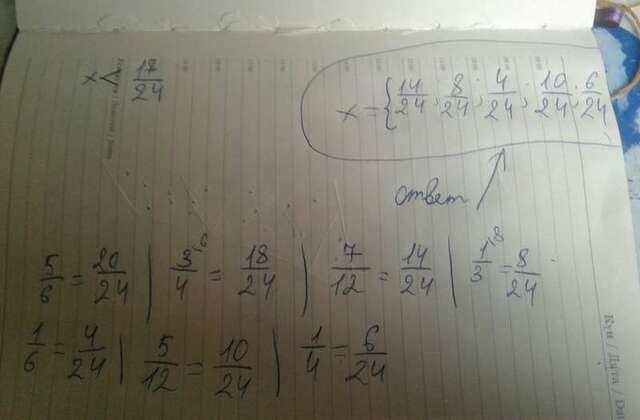 x < 17/24
x = { 14/24 ; 8/24 ; 4/24 ; 10/24 ; 6/24
ответ
5/6 = 20/24 | 3/4 ⁶ = 18/24 | 7/12 = 14/24 | 1/3 ⁸ = 8/24
1/6 = 4/24 | 5/12 = 10/24 | 1/4 = 6/24
Күн / Дата / Da